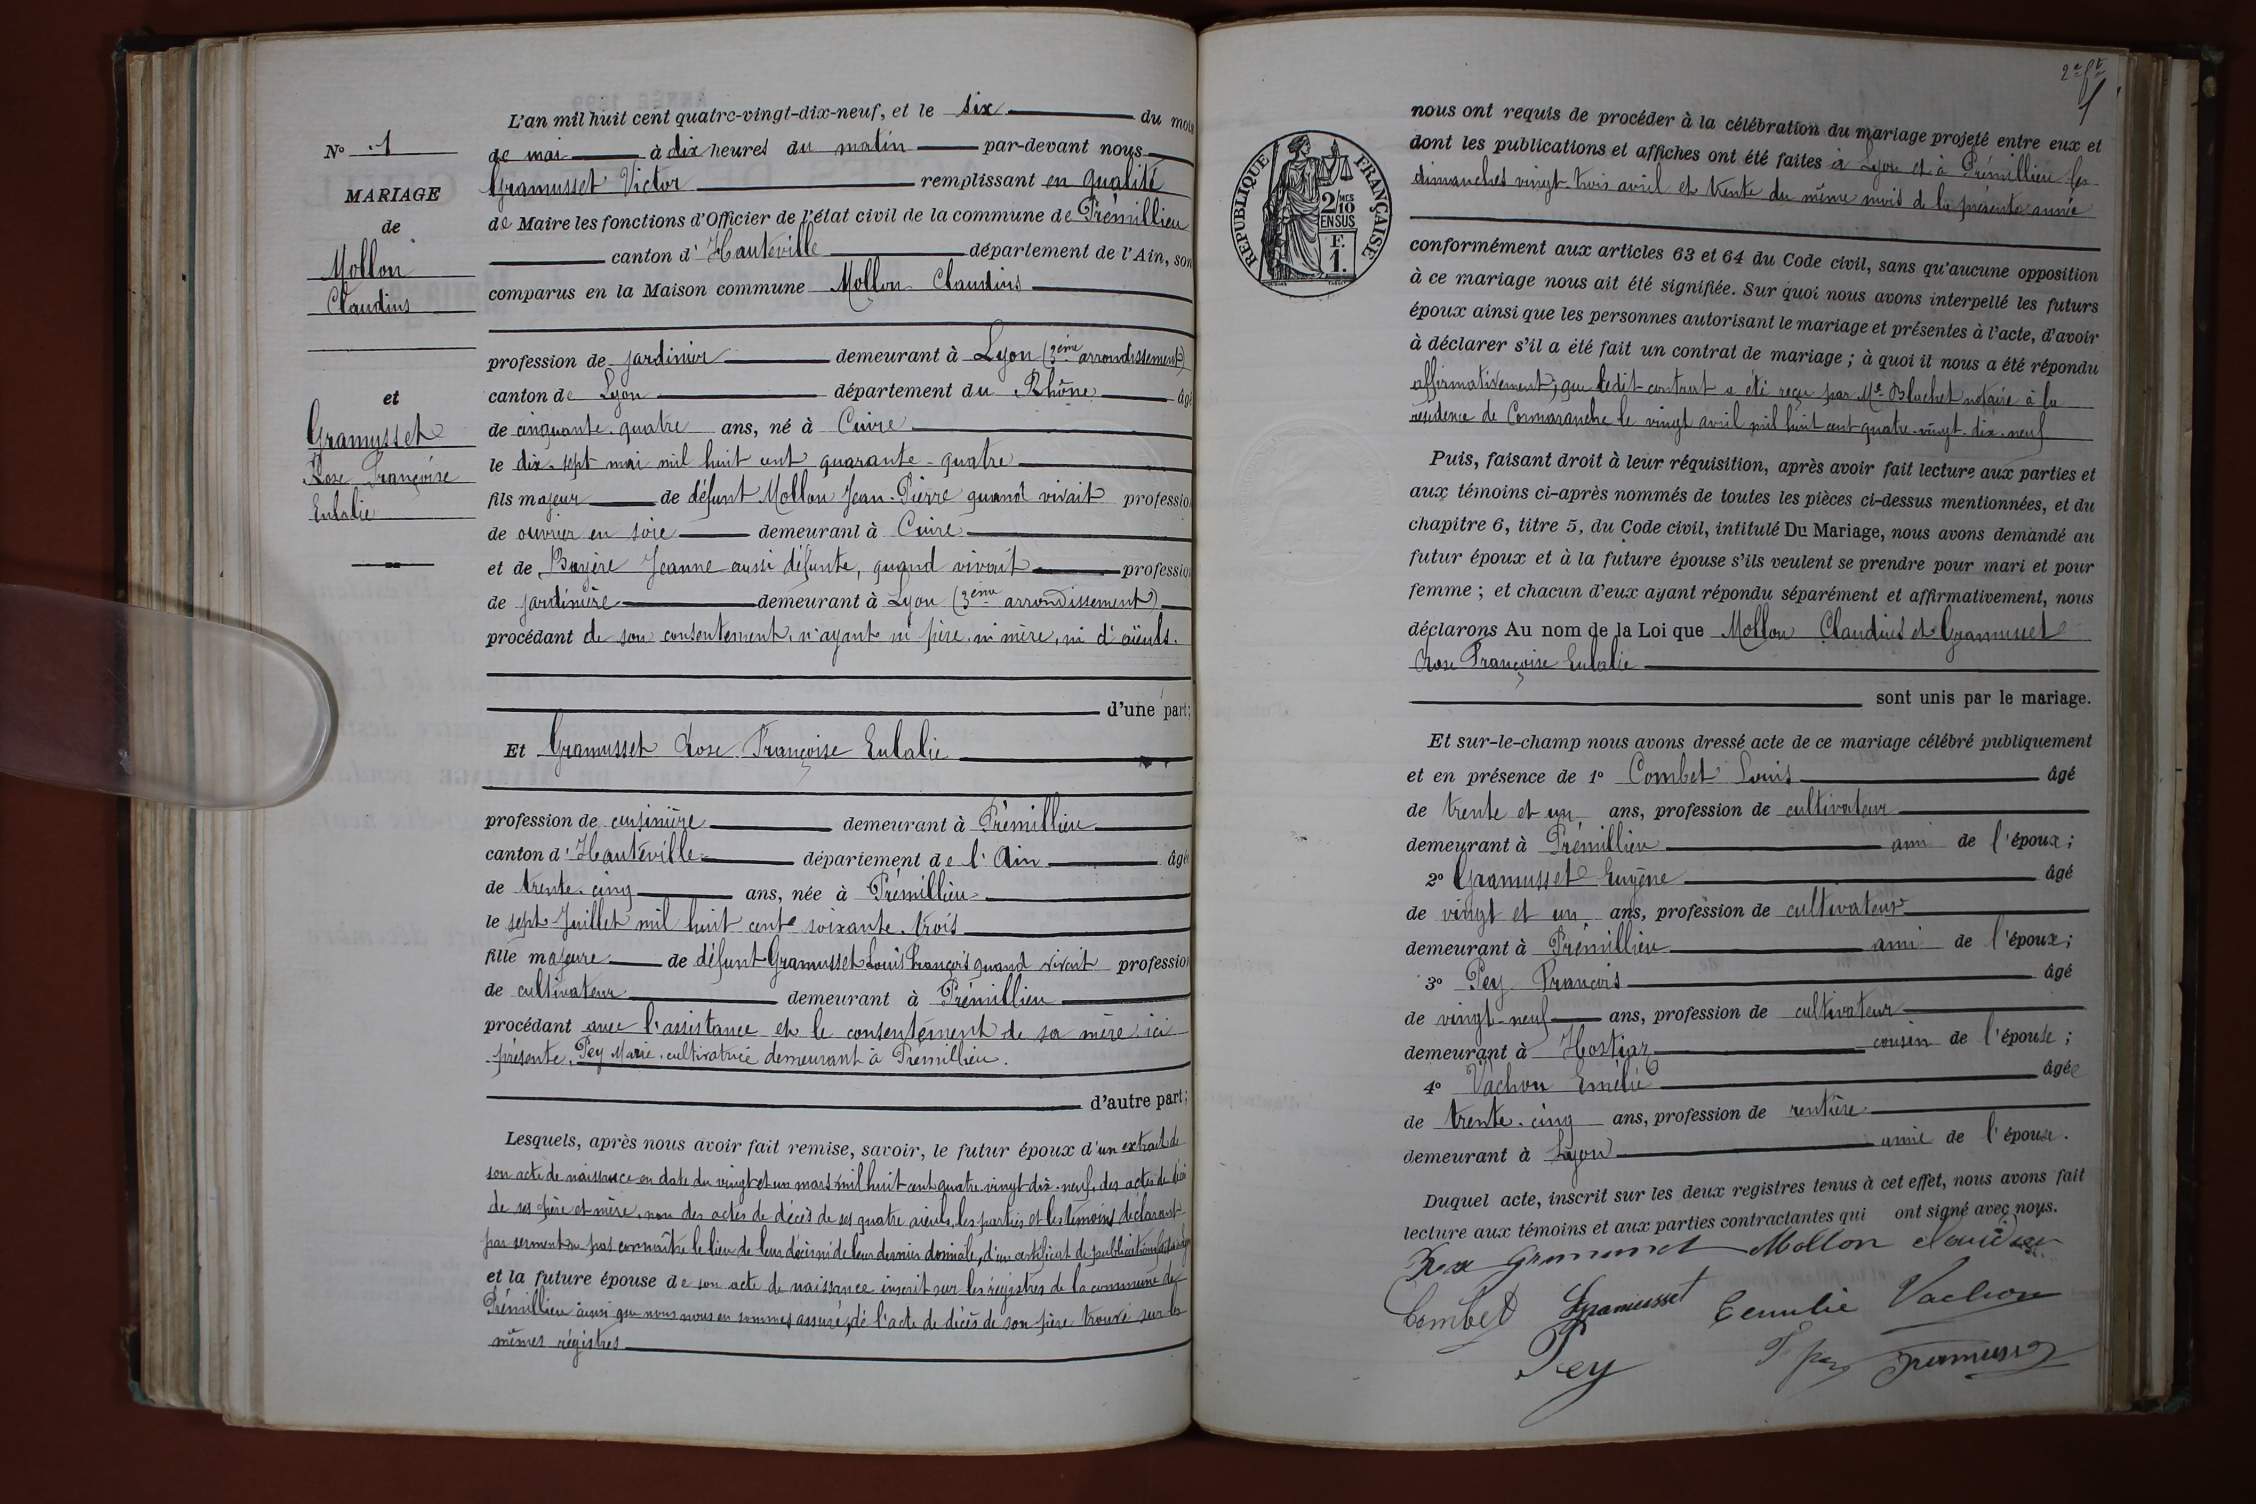 L'an mil huit cent quatre-vingt-dix-neuf, et le six du mois
de mai à dix heures du matin par-devant nous
Gramusset Victor remplissant en qualité
de Maire les fonctions d'Officier de l'état civil de la commune de Prémillieu
canton d'Hauteville département de l'Ain, son
comparus en la Maison commune Mollon Claudius
profession de jardinier demeurant à Lyon (3ème arrondissement)
canton de Lyon département du Rhône âgé
de cinquante-quatre ans, né à Cuire
le dix-sept mai mil huit cent quarante-quatre
fils majeur de défunt Mollon Jean-Pierre quand vivait profession
de ouvrier en soie demeurant à Cuire
et de Bruyère Jeanne aussi défunte, quand vivait profession
de jardinière demeurant à Lyon (3ème arrondissement)
procédant de son consentement, n'ayant ni père, ni mère, ni d'aïeuls.
d'une part;
Et Gramusset Rose Françoise Eulalie
profession de cuisinière demeurant à Prémillieu
canton d'Hauteville département de l'Ain âgée
de trente-cinq ans, née à Prémillieu
le sept Juillet mil huit cent soixante-trois
fille majeure de défunt Gramusset Louis François quand vivait profession
de cultivateur demeurant à Prémillieu
procédant avec l'assistance et le consentement de sa mère ici
présente, Pey Marie, cultivatrice demeurant à Prémillieu.
d'autre part;
Lesquels, après nous avoir fait remise, savoir, le futur époux d'un extrait de
son acte de naissance en date du vingt et un mars mil huit cent quatre-vingt-dix-neuf, des actes de décès
de ses père et mère, non des actes de décès de ses quatre aïeuls, les parties et les témoins déclarant
par serment ne pas connaître le lieu de leur décès ni de leur dernier domicile, d'un certificat de publication
et la future épouse de son acte de naissance inscrit sur les régistres de la commune de
Prémillieu ainsi que nous nous en sommes assuré, de l'acte de décès de son père trouvé sur les
mêmes régistres
N° 1
MARIAGE
de
Mollon
Claudius
et
Gramusset
Rose Françoise
Eulalie
2e ft
1
REPUBLIQUE FRANÇAISE
2 MES
10
EN SUS
F.
1.
nous ont requis de procéder à la célébration du mariage projeté entre eux et
dont les publications et affiches ont été faites à Lyon et à Prémillieu les
dimanches vingt-trois avril et trente du même mois de la présente année
conformément aux articles 63 et 64 du Code civil, sans qu'aucune opposition
à ce mariage nous ait été signifiée. Sur quoi nous avons interpellé les futurs
époux ainsi que les personnes autorisant le mariage et présentes à l'acte, d'avoir
à déclarer s'il a été fait un contrat de mariage; à quoi il nous a été répondu
affirmativement, que ledit contrat a été reçu par Me Blachet notaire à la
résidence de Cormaranche le vingt avril mil huit cent quatre-vingt-dix-neuf
Puis, faisant droit à leur réquisition, après avoir fait lecture aux parties et
aux témoins ci-après nommés de toutes les pièces ci-dessus mentionnées, et du
chapitre 6, titre 5, du Code civil, intitulé Du Mariage, nous avons demandé au
futur époux et à la future épouse s'ils veulent se prendre pour mari et pour
femme; et chacun d'eux ayant répondu séparément et affirmativement, nous
déclarons Au nom de la Loi que Mollon Claudius et Gramusset
Rose Françoise Eulalie
sont unis par le mariage.
Et sur-le-champ nous avons dressé acte de ce mariage célébré publiquement
et en présence de 1° Combet Louis âgé
de trente et un ans, profession de cultivateur
demeurant à Prémillieu ami de l'époux;
2° Gramusset Eugène âgé
de vingt et un ans, profession de cultivateur
demeurant à Prémillieu ami de l'époux;
3° Pey François âgé
de vingt-neuf ans, profession de cultivateur
demeurant à Hostiaz cousin de l'épouse;
4° Vachon Emélie âgée
de trente-cinq ans, profession de rentière
demeurant à Lyon amie de l'épouse.
Duquel acte, inscrit sur les deux registres tenus à cet effet, nous avons fait
lecture aux témoins et aux parties contractantes qui ont signé avec nous.
Rose Gramusset Mollon Claudius
Combet Gramusset Emilie Vachon
Pey Gramusset